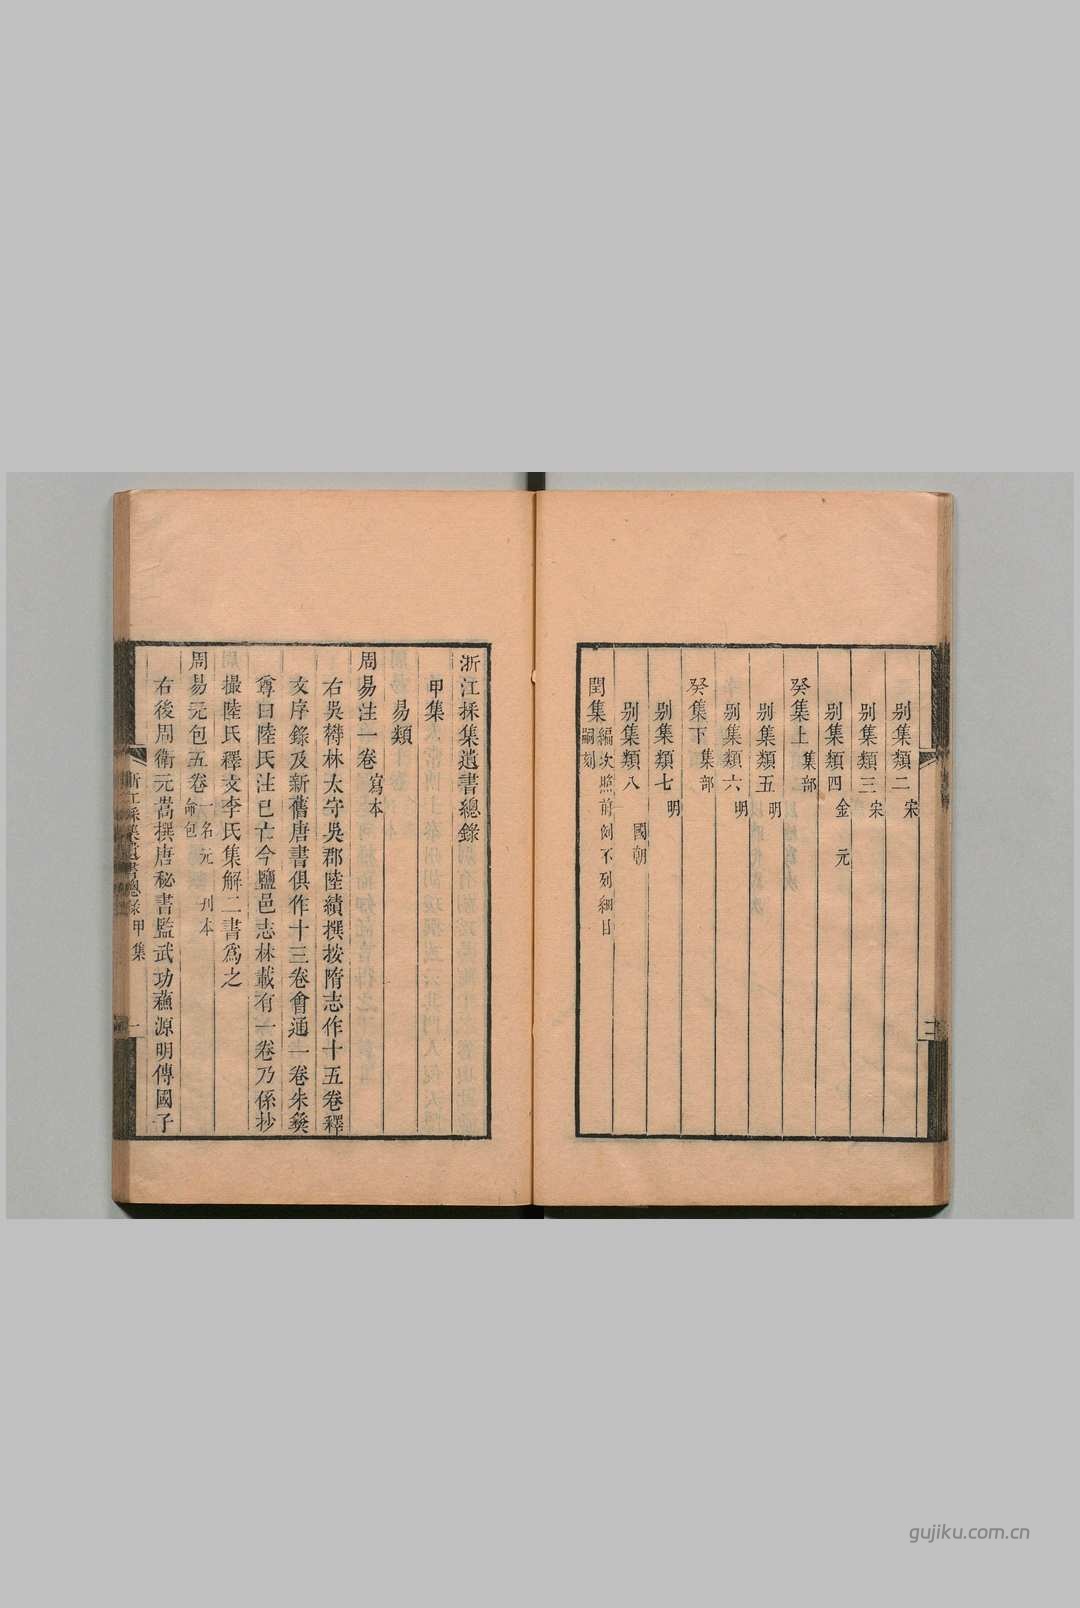 别集類二 宋
别集類三 宋
别集類四 金 元
癸集上 集部
别集類五 明
别集類六 明
癸集下 集部
别集類七 明
别集類八 國朝
閏集 編次照前例不列細目
嗣刻
二
浙江採集遺書總錄
甲集
易類
周易注一卷 寫本
右吳鬱林太守吳郡陸績撰按隋志作十五卷釋
文序錄及新舊唐書俱作十三卷會通一卷朱彝
尊曰陸氏注已亡今鹽邑志林載有一卷乃係抄
撮陸氏釋文李氏集解二書爲之
周易元包五卷 一名元命包 刊本
右後周衛元嵩撰唐秘書監武功蘇源明傳國子
浙江採集遺書總錄 甲集 一
gujiku.com.cn